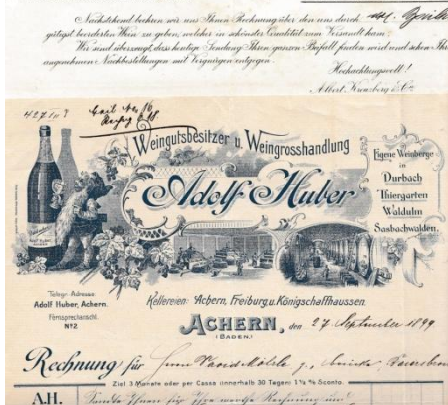 Nachstehend beehren wir uns Ihnen Rechnung über den uns durch
gütigst beorderten Wein zu geben, welcher in schönster Qualität zum Versandt kam.
Wir sind überzeugt, dass heutige Sendung Ihren ganzen Beifall finden wird und sehen
angenehmen Nachbestellungen mit Vergnügen entgegen.
Hochachtungsvoll!
Albert Kransberg & Co
Weingutsbesitzer u. Weingrosshandlung
Adolf Huber
Eigene Weinberge
in
Durbach
Thiergarten
Waldulm
Sasbachwalden.
Telegr. Adresse:
Adolf Huber, Achern.
Fernsprechanschl.
Nº2.
Kellereien: Achern, Freiburg u. Königschaffhausen.
ACHERN, den 27 September 1899
(BADEN.)
Rechnung für Herrn
Ziel 3 Monate oder per Cassa innerhalb 30 Tagen 1½ % Sconto.
A.H. Sandte Ihnen für Ihre werthe Rechnung